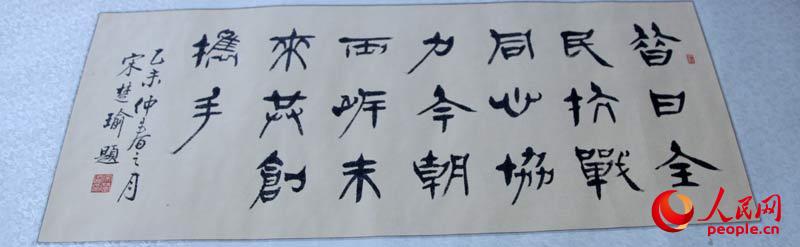 昔日全
民抗戰
同心協
力今朝
兩岸未
來共創
攜手
乙未仲春之月
宋楚瑜題
人民网
people.cn